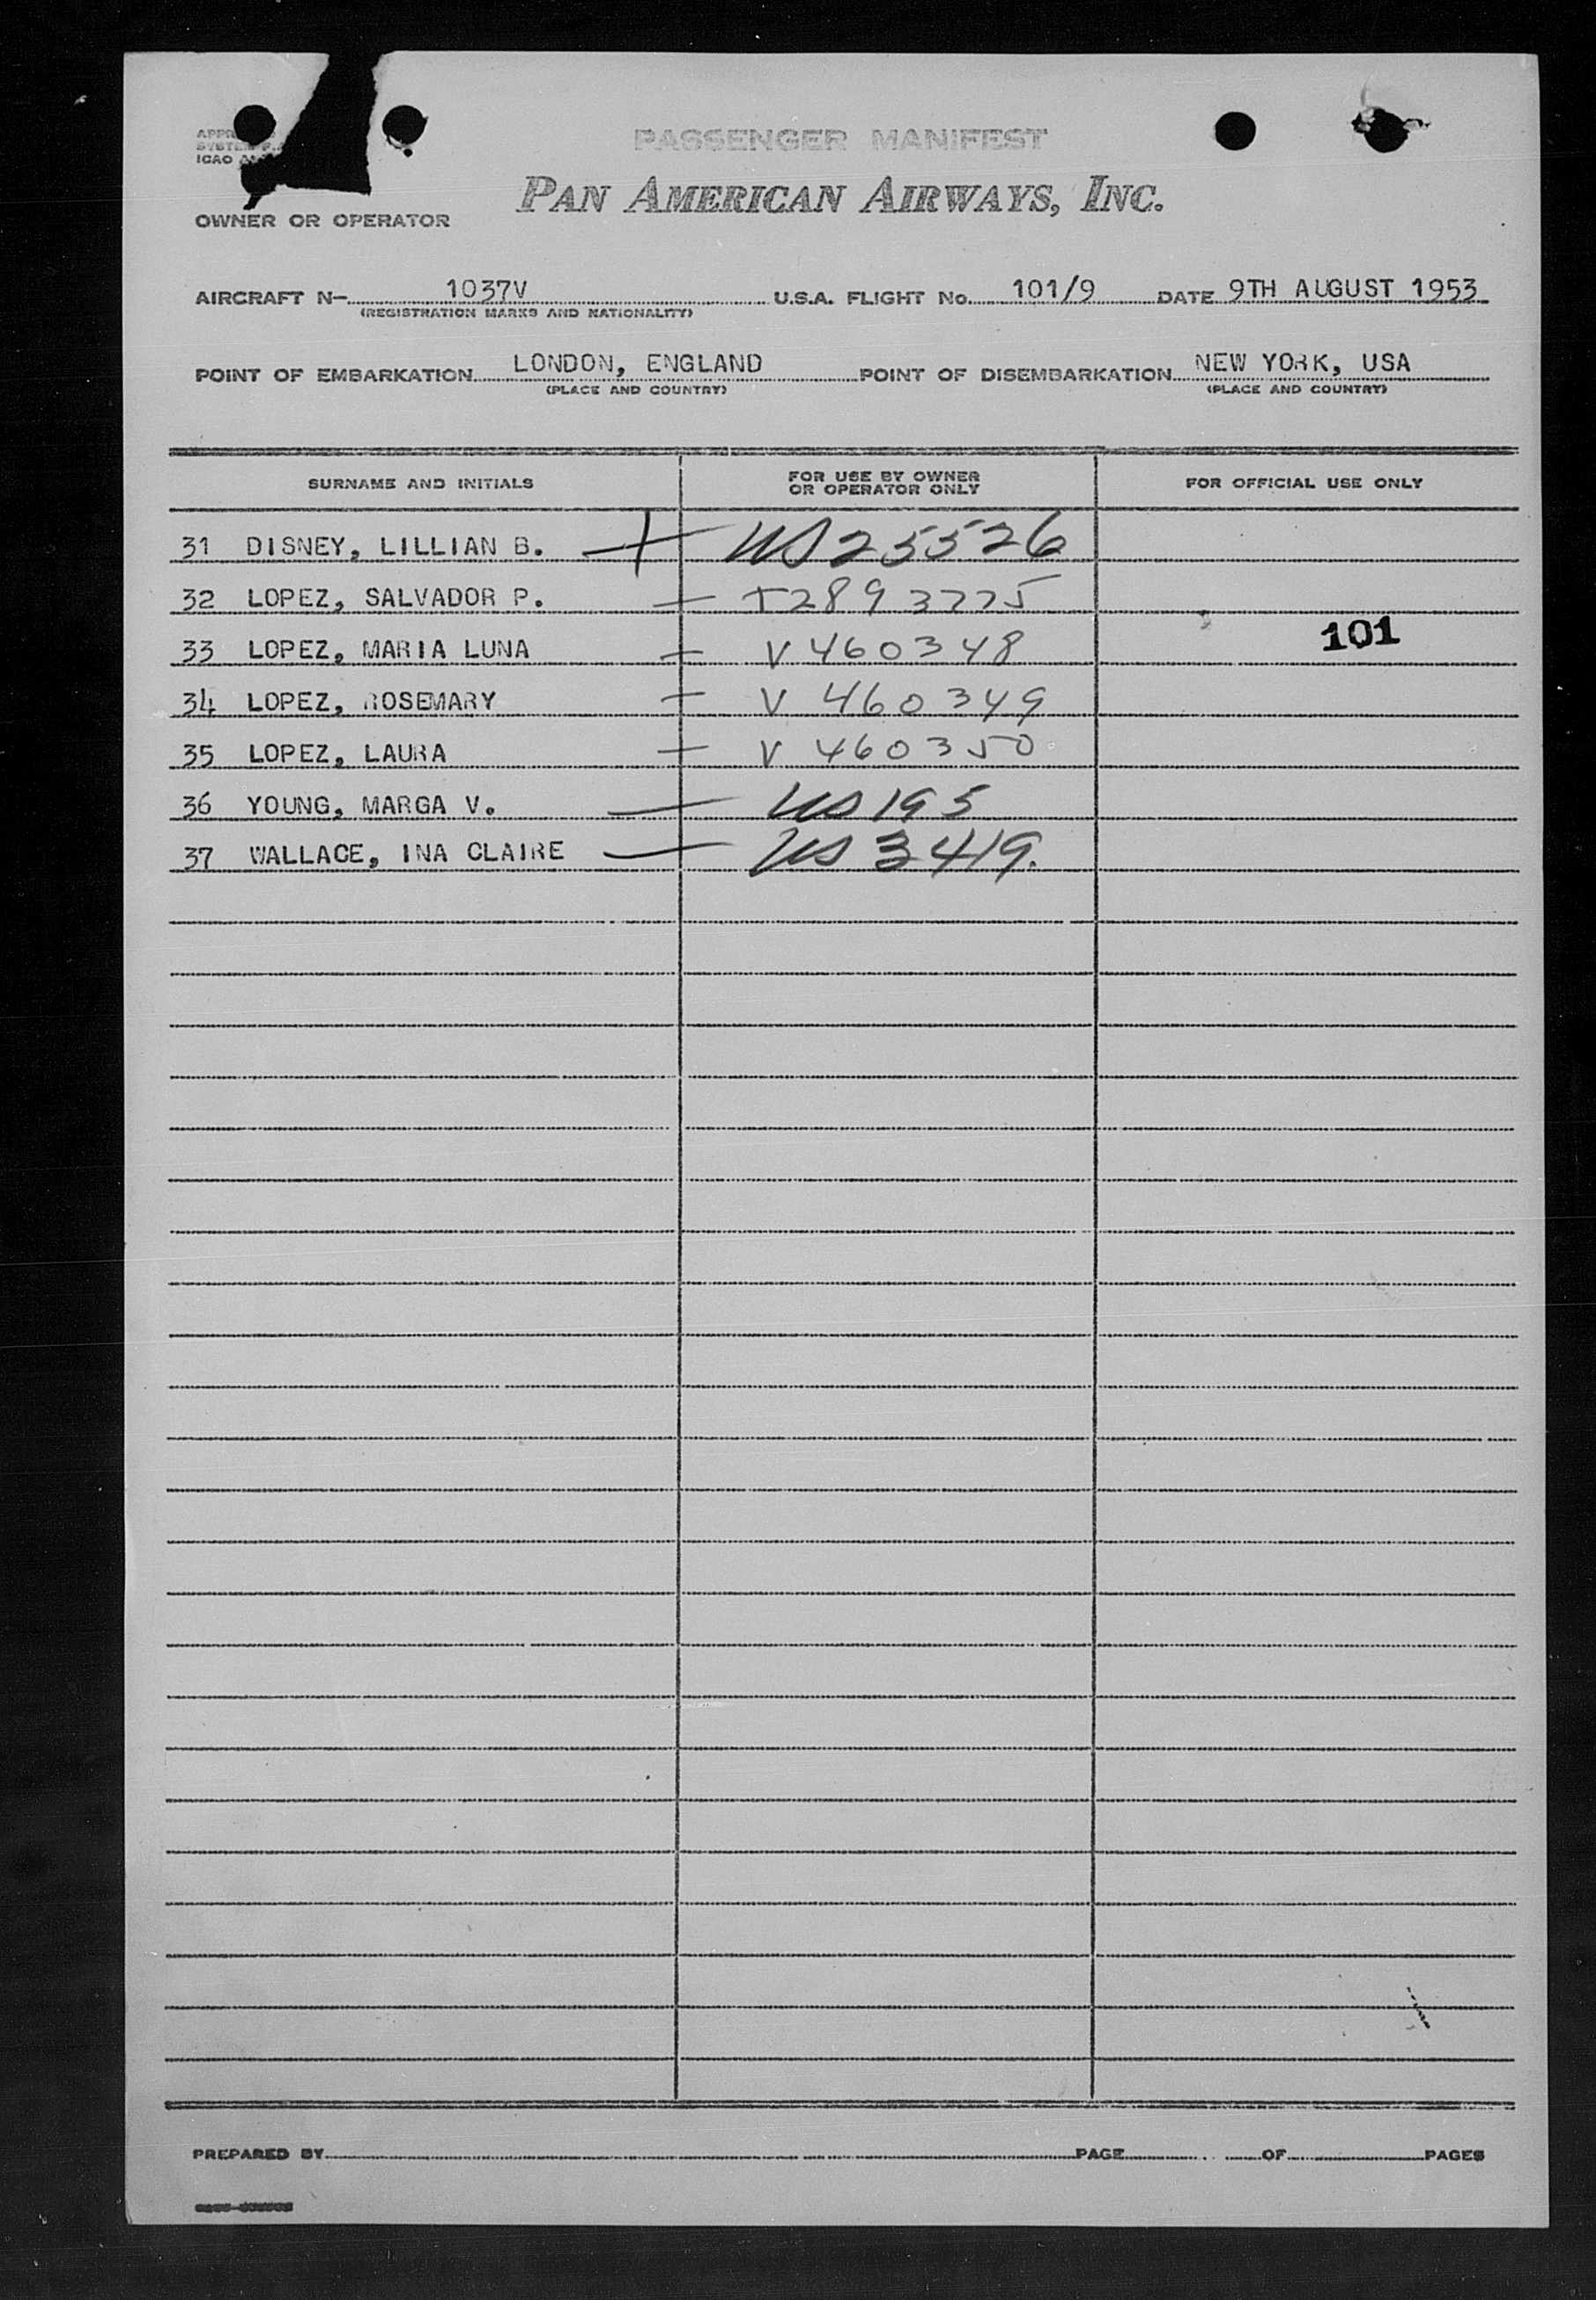 PASSENGER MANIFEST
ICAO
PAN AMERICAN AIRWAYS, INC.
OWNER OR OPERATOR
AIRCRAFT N- 1037V U.S.A. FLIGHT No. 101/9 DATE 9TH AUGUST 1953
(REGISTRATION MARKS AND NATIONALITY)
POINT OF EMBARKATION LONDON, ENGLAND POINT OF DISEMBARKATION NEW YORK, USA
(PLACE AND COUNTRY) (PLACE AND COUNTRY)
SURNAME AND INITIALS FOR USE BY OWNER OR OPERATOR ONLY FOR OFFICIAL USE ONLY
31 DISNEY, LILLIAN B. US 25526
32 LOPEZ, SALVADOR P. T2893775
33 LOPEZ, MARIA LUNA V 460348 101
34 LOPEZ, ROSEMARY V 460349
35 LOPEZ, LAURA V 460350
36 YOUNG, MARGA V. US 195
37 WALLACE, INA CLAIRE US 3419.
PREPARED BY PAGE OF PAGES